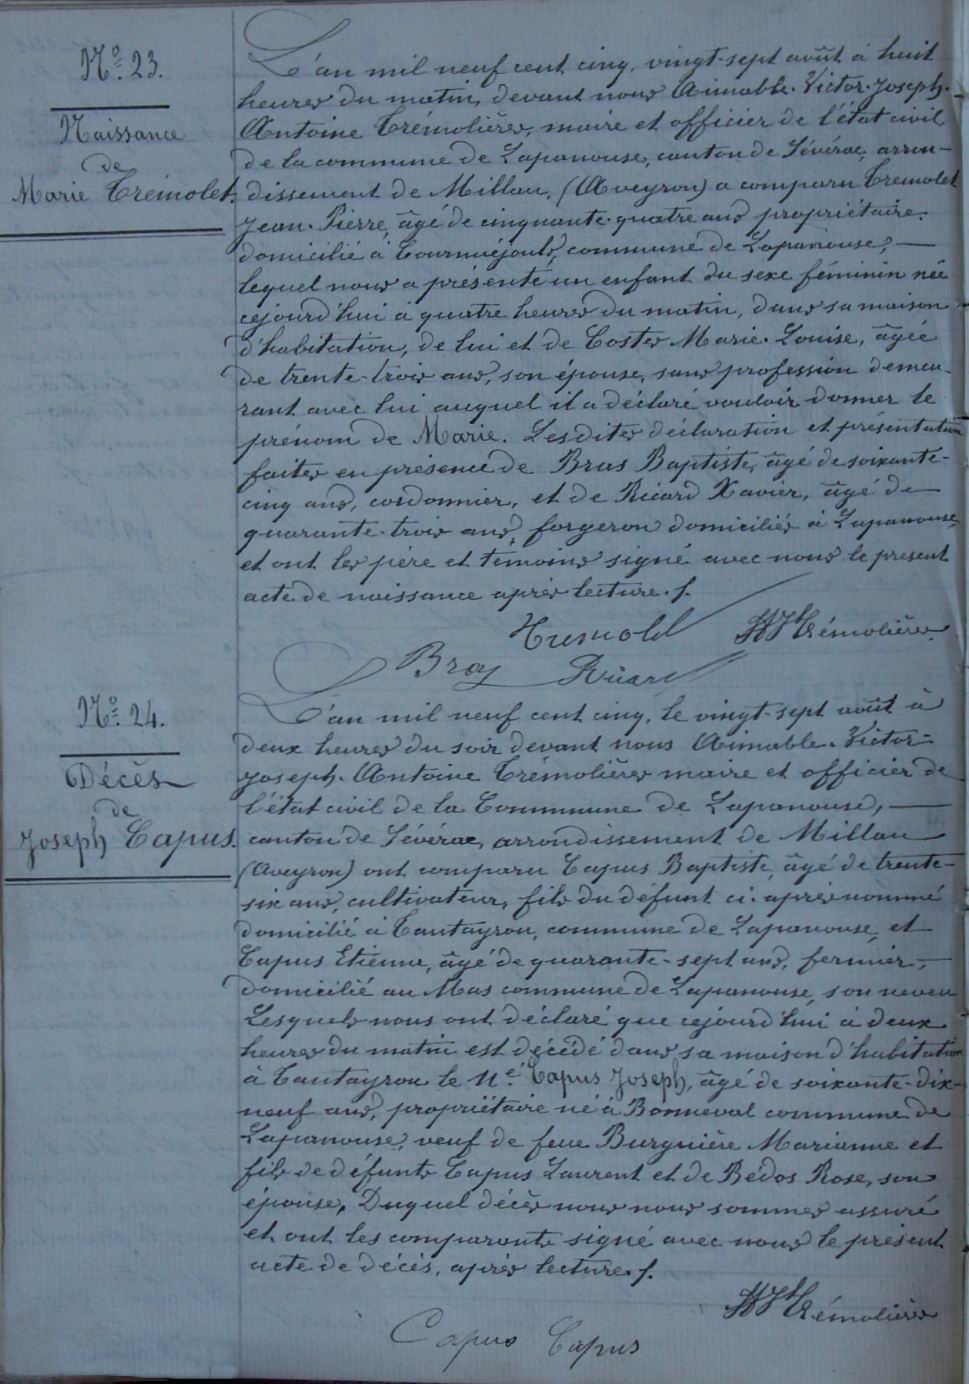 N°. 23.
Naissance
de
Marie Trémolet.
L'an mil neuf cent cinq, vingt-sept août à huit
heures du matin, devant nous Aimable. Victor. Joseph.
Antoine Trémolières, maire et officier de l'état civil
de la commune de Lapanouse, canton de Sévérac, arron-
dissement de Millau, (Aveyron) a comparu Tremolet
Jean. Pierre, âgé de cinquante-quatre ans propriétaire.
domicilié à Tourmiéjouls, commune de Lapanouse, —
lequel nous a présenté un enfant du sexe féminin née
cejourd'hui à quatre heures du matin, dans sa maison
d'habitation, de lui et de Costes Marie. Louise, âgée
de trente-trois ans, son épouse, sans profession demeu-
rant avec lui auquel il a déclaré vouloir donner le
prénom de Marie. Lesdites déclaration et présentation
faites en présence de Bras Baptiste, âgé de soixante-
cinq ans, cordonnier, et de Ricard Xavier, âgé de
quarante-trois ans, forgeron domiciliés à Lapanouse,
et ont les père et témoins signé avec nous le présent
acte de naissance après lecture. /.
Tremolet AVJATrémolières
Bras Ricard
N°. 24.
Décès
de
Joseph Capus.
L'an mil neuf cent cinq, le vingt-sept août à
deux heures du soir devant nous Aimable. Victor-
Joseph. Antoine Trémolières maire et officier de
l'état civil de la Commune de Lapanouse, —
canton de Sévérac, arrondissement de Millau
(Aveyron) ont comparu Capus Baptiste, âgé de trente-
six ans, cultivateur, fils du défunt ci. après nommé
domicilié à Tantayrou, commune de Lapanouse, et
Capus Etienne, âgé de quarante-sept ans, fermier, —
domicilié au Mas commune de Lapanouse, son neveu
Lesquels nous ont déclaré que cejourd'hui à deux
heures du matin est décédé dans sa maison d'habitation
à Tantayrou le né Capus Joseph, âgé de soixante-dix-
neuf ans, propriétaire né à Bonneval commune de
Lapanouse, veuf de feue Burguière Marianne et
fils de défunts Capus Laurent et de Bédos Rose, son
épouse. Duquel décès nous nous sommes assuré
et ont les comparants signé avec nous le présent
acte de décès, après lecture. /.
AVJATrémolières
Capus Capus